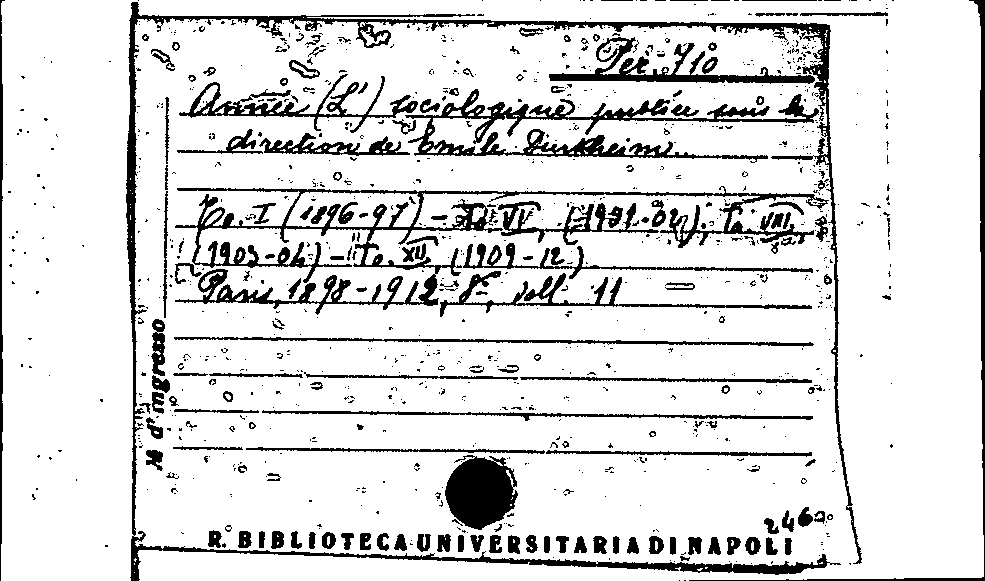 Per. 710
Année (L') sociologique publiée sous la
direction de Emile Durkheim.
To. I (1896-97) - To. VI, (1901-02); To. VIII,
(1903-04) - To. XII, (1909-12)
Paris, 1898-1912, 8°, voll. 11
N d'ingresso
2460
R. BIBLIOTECA UNIVERSITARIA DI NAPOLI